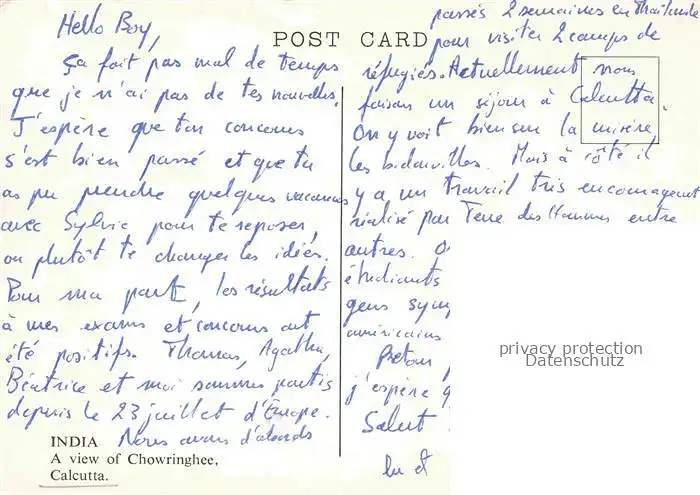 Hello Boy,
POST CARD
Ça fait pas mal de temps
que je n'ai pas de tes nouvelles.
J'espère que ton concours
s'est bien passé et que tu
as pu prendre quelques vacances
avec Sylvie pour te reposer,
ou plutôt te changer les idées.
Pour ma part, les résultats
à mes exams et concours ont
été positifs. Thomas, Agathe,
Béatrice et moi sommes partis
depuis le 23 juillet d'Europe.
Nous avons d'abords
INDIA
A view of Chowringhee,
Calcutta.
passés 2 semaines en Thaïlande
pour visiter 2 camps de
réfugiés. Actuellement nous
faisons un séjour à Calcutta.
On y voit bien sur la misère,
les bidonvilles. Mais à côté il
y a un travail très encourageant
réalisé par Terre des Hommes entre
autres.
étudiants
gens
américains
Retour
j'espère
Salut
privacy protection
Datenschutz